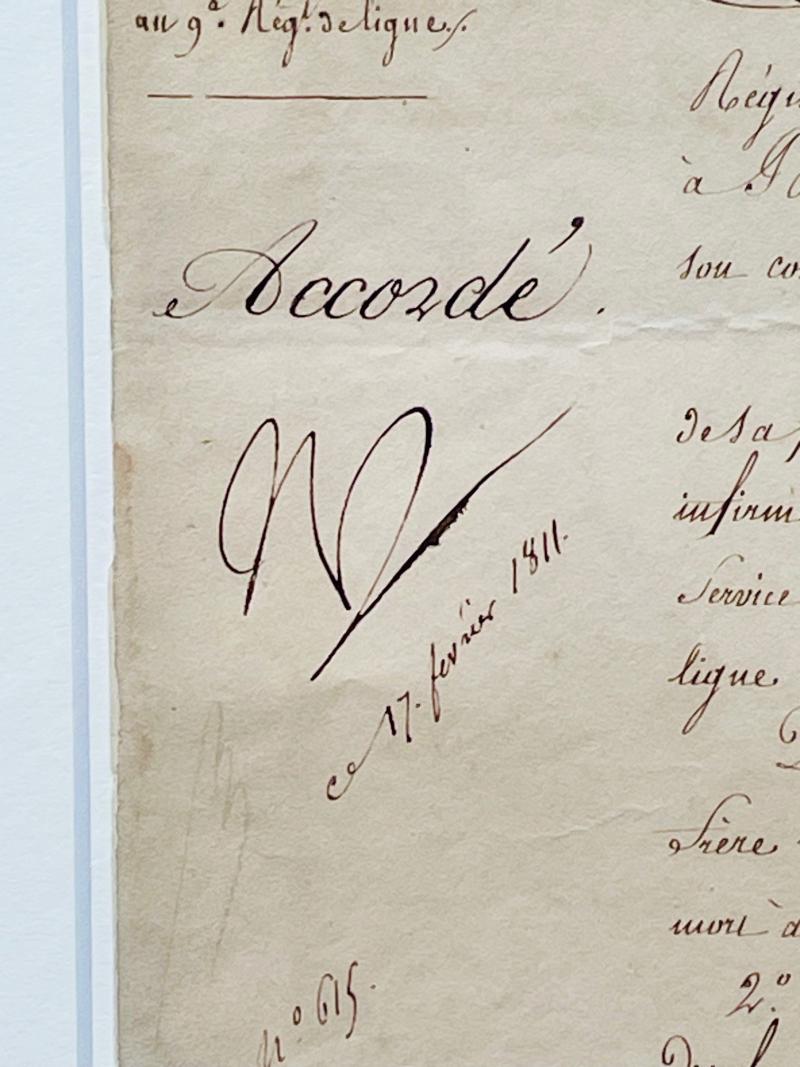 au 9e. Régt. de ligne
Accordé.
N
ce 17. février 1811.
n° 615.
à
son
de sa
Service
ligne.
frère
mort à
2.°